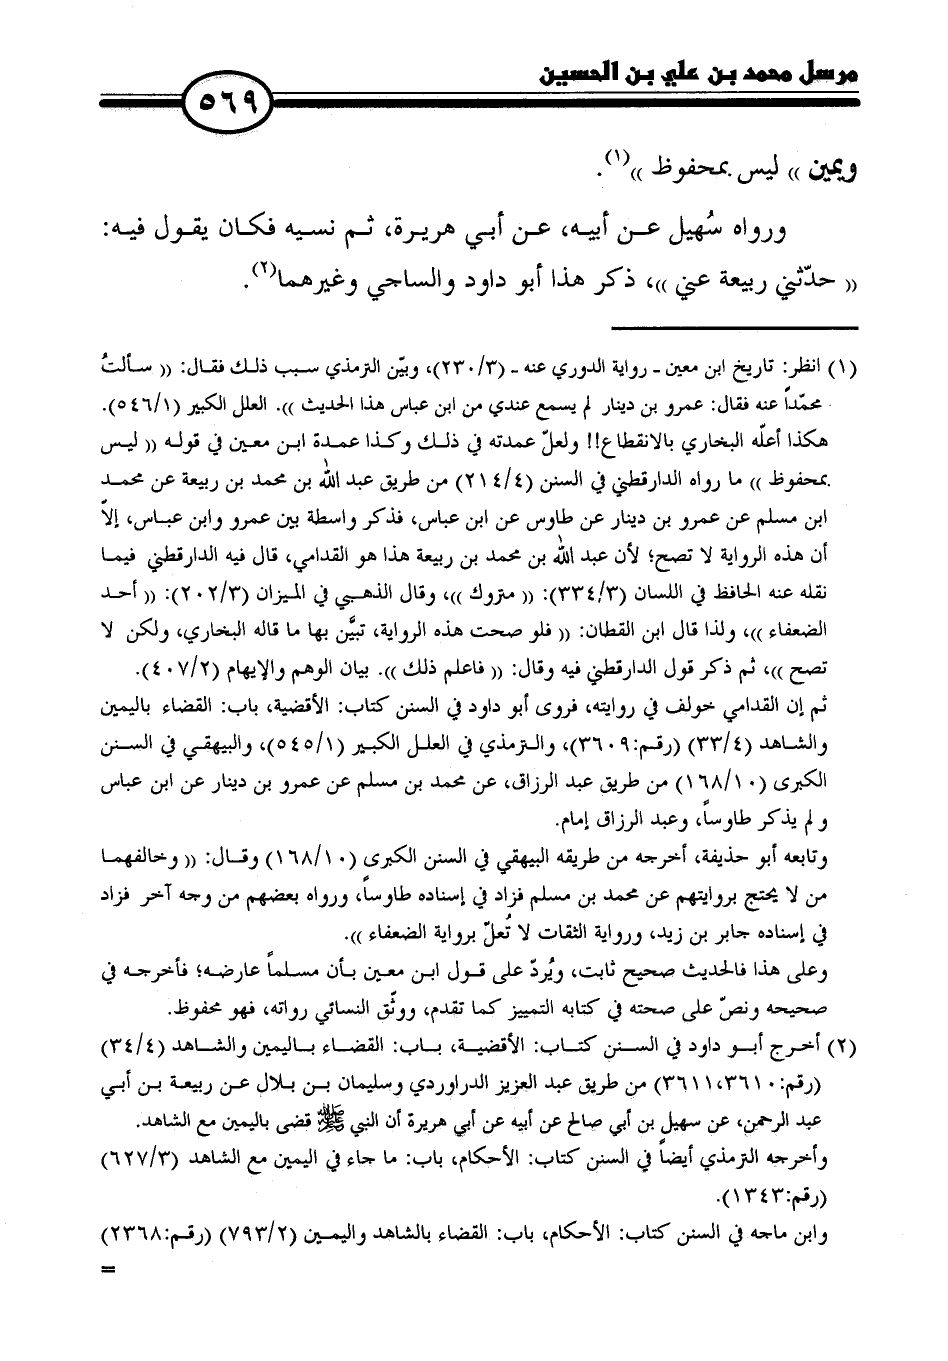 مرسل محمد بن علي بن الحسين
٥٦٩
ويمين » ليس بمحفوظ »(١).
ورواه سُهيل عن أبيه، عن أبي هريرة، ثم نسيه فكان يقول فيه:
« حدّثني ربيعة عني »، ذكر هذا أبو داود والساجي وغيرهما(٢).
(١) انظر: تاريخ ابن معين ـ رواية الدوري عنه ـ (٢٣٠/٣)، وبيّن الترمذي سبب ذلك فقال: « سألتُ
محمّداً عنه فقال: عمرو بن دينار لم يسمع عندي من ابن عباس هذا الحديث ». العلل الكبير (٥٤٦/١).
هكذا أعلّه البخاري بالانقطاع!! ولعلّ عمدته في ذلك وكذا عمدة ابن معين في قوله « ليس
بمحفوظ » ما رواه الدارقطني في السنن (٢١٤/٤) من طريق عبد الله بن محمد بن ربيعة عن محمد
ابن مسلم عن عمرو بن دينار عن طاوس عن ابن عباس، فذكر واسطة بين عمرو وابن عباس، إلاّ
أن هذه الرواية لا تصح؛ لأن عبد الله بن محمد بن ربيعة هذا هو القدامي، قال فيه الدارقطني فيما
نقله عنه الحافظ في اللسان (٣٣٤/٣): « متروك »، وقال الذهبي في الميزان (٢٠٢/٣): « أحد
الضعفاء »، ولذا قال ابن القطان: « فلو صحت هذه الرواية، تبيَّن بها ما قاله البخاري، ولكن لا
تصح »، ثم ذكر قول الدارقطني فيه وقال: « فاعلم ذلك ». بيان الوهم والإيهام (٤٠٧/٢).
ثم إن القدامي خولف في روايته، فروى أبو داود في السنن كتاب: الأقضية، باب: القضاء باليمين
والشاهد (٣٣/٤) (رقم:٣٦٠٩)، والترمذي في العلل الكبير (٥٤٥/١)، والبيهقي في السنن
الكبرى (١٦٨/١٠) من طريق عبد الرزاق، عن محمد بن مسلم عن عمرو بن دينار عن ابن عباس
ولم يذكر طاوساً، وعبد الرزاق إمام.
وتابعه أبو حذيفة، أخرجه من طريقه البيهقي في السنن الكبرى (١٦٨/١٠) وقال: « وخالفهما
من لا يحتج بروايتهم عن محمد بن مسلم فزاد في إسناده طاوساً، ورواه بعضهم من وجه آخر فزاد
في إسناده جابر بن زيد، ورواية الثقات لا تُعلّ برواية الضعفاء ».
وعلى هذا فالحديث صحيح ثابت، ويُردّ على قول ابن معين بأن مسلماً عارضه؛ فأخرجه في
صحيحه ونصّ على صحته في كتابه التمييز كما تقدم، ووثّق النسائي رواته، فهو محفوظ.
(٢) أخرج أبو داود في السنن كتاب: الأقضية، باب: القضاء باليمين والشاهد (٣٤/٤)
(رقم:٣٦١١،٣٦١٠) من طريق عبد العزيز الدراوردي وسليمان بن بلال عن ربيعة بن أبي
عبد الرحمن، عن سهيل بن أبي صالح عن أبيه عن أبي هريرة أن النبي ﷺ قضى باليمين مع الشاهد.
وأخرجه الترمذي أيضاً في السنن كتاب: الأحكام، باب: ما جاء في اليمين مع الشاهد (٦٢٧/٣)
(رقم:١٣٤٣).
وابن ماجه في السنن كتاب: الأحكام، باب: القضاء بالشاهد واليمين (٧٩٣/٢) (رقم:٢٣٦٨)
=